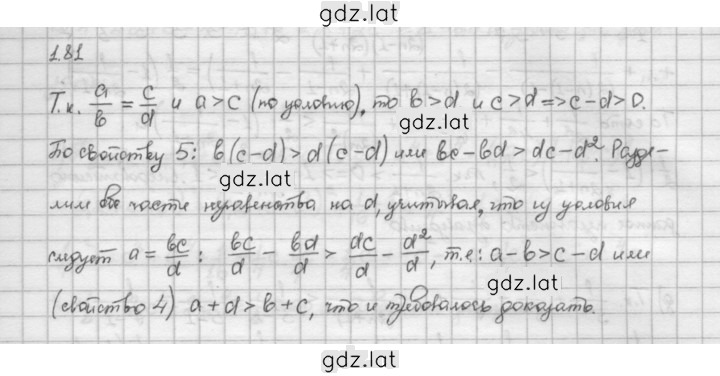 gdz.lat
1.81
Т.к. a/b = c/d и a>c (по условию), то b>d и c>d=>c-d>0.
gdz.lat
По свойству 5: b(c-d)>d(c-d) или bc-bd>dc-d². Разде-
gdz.lat
лим обе части неравенства на d, учитывая, что из условия
следует a = bc/d : bc/d - bd/d > dc/d - d²/d, т.е: a-b>c-d или
gdz.lat
(свойство 4) a+d>b+c, что и требовалось доказать.
gdz.lat